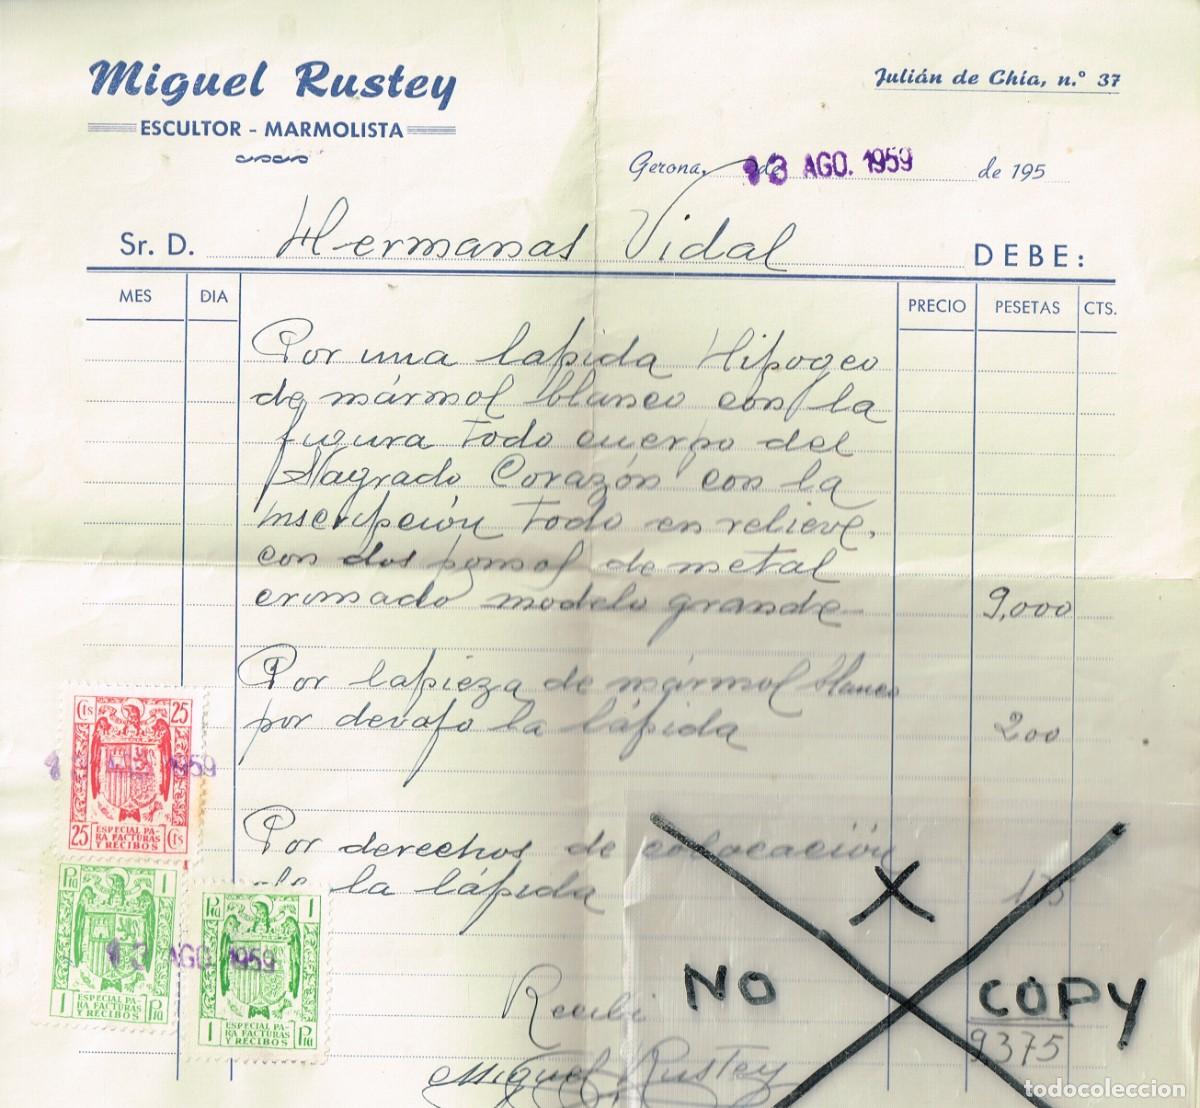 Miguel Rustey
ESCULTOR - MARMOLISTA
Julián de Chía, n.º 37
Gerona, de 13 AGO. 1959 de 195
Sr. D. Hermanas Vidal DEBE:
MES DIA PRECIO PESETAS CTS.
Por una lapida Hipogeo
de mármol blanco con la
figura todo cuerpo del
Sagrado Corazón con la
inscripción todo en relieve,
con dos pomos de metal
cromado modelo grande 9,000
Por la pieza de mármol blanco
por devajo la lápida 200
Por derechos de colocación
de la lápida 175
Recibi
9375
Miguel Rustey
Cts 25
13 AGO. 1959
25 ESPECIAL PA- Cts
RA FACTURAS
Y RECIBOS
Pta 1
13 AGO. 1959
1 ESPECIAL PA- Pta
RA FACTURAS
Y RECIBOS
Pta 1
1 ESPECIAL PA- Pta
RA FACTURAS
Y RECIBOS
X
NO COPY
todocoleccion